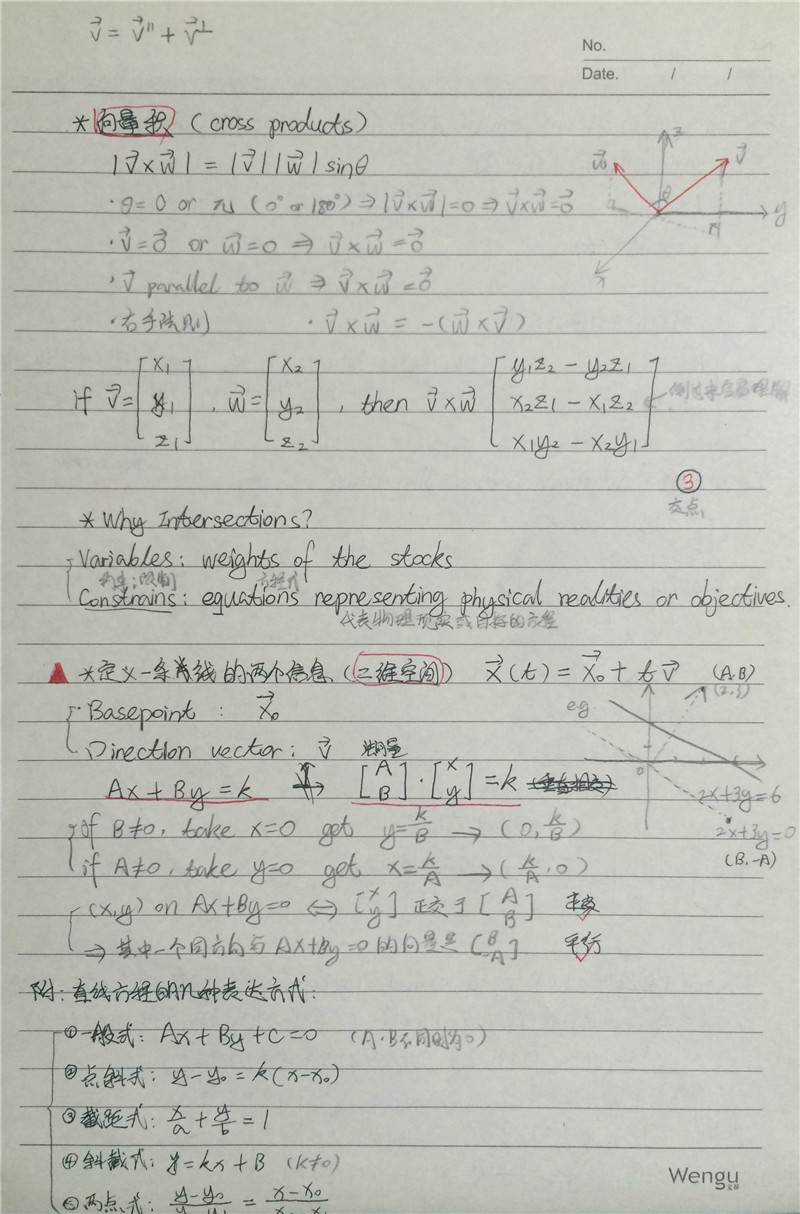 v⃗ = v⃗∥ + v⃗⊥
No.
Date. / /
* 向量积 (cross products)
|v⃗×w⃗| = |v⃗||w⃗| sinθ
·θ=0 or π (0° or 180°) ⇒ |v⃗×w⃗|=0 ⇒ v⃗×w⃗=0⃗
·v⃗=0⃗ or w⃗=0 ⇒ v⃗×w⃗=0⃗
·v⃗ parallel to w⃗ ⇒ v⃗×w⃗=0⃗
·右手法则 ·v⃗×w⃗ = -(w⃗×v⃗)
z
w⃗ v⃗
θ
y
x
if v⃗=[x₁ y₁ z₁], w⃗=[x₂ y₂ z₂], then v⃗×w⃗ [y₁z₂ - y₂z₁ x₂z₁ - x₁z₂ x₁y₂ - x₂y₁]
③
交点
* Why Intersections?
Variables: weights of the stocks
方程式
Constrains: equations representing physical realities or objectives.
代表物理现实或目标的方程
*定义一条直线的两个信息 (二维空间) x⃗(t) = x⃗₀ + tv⃗ (A·B)
(2,3)
·Basepoint : x⃗₀ e.g.
Direction vector: v⃗
Ax + By = k ⇔ [A B]·[x y] = k
0
2x+3y=6
2x+3y=0
(B,-A)
if B≠0, take x=0 get y=k/B → (0, k/B)
if A≠0, take y=0 get x=k/A → (k/A, 0)
(x,y) on Ax+By=0 ⇔ [x y] 正交于 [A B]
⇒ 其中一个同方向与Ax+By=0的向量是[B -A] 平行
附: 直线方程的几种表达方式:
①一般式: Ax + By + C = 0 (A·B不同时为0)
②点斜式: y-y₀ = k(x-x₀)
③截距式: x/a + y/b = 1
④斜截式: y = kx + B (k≠0)
⑤两点式:
Wengu